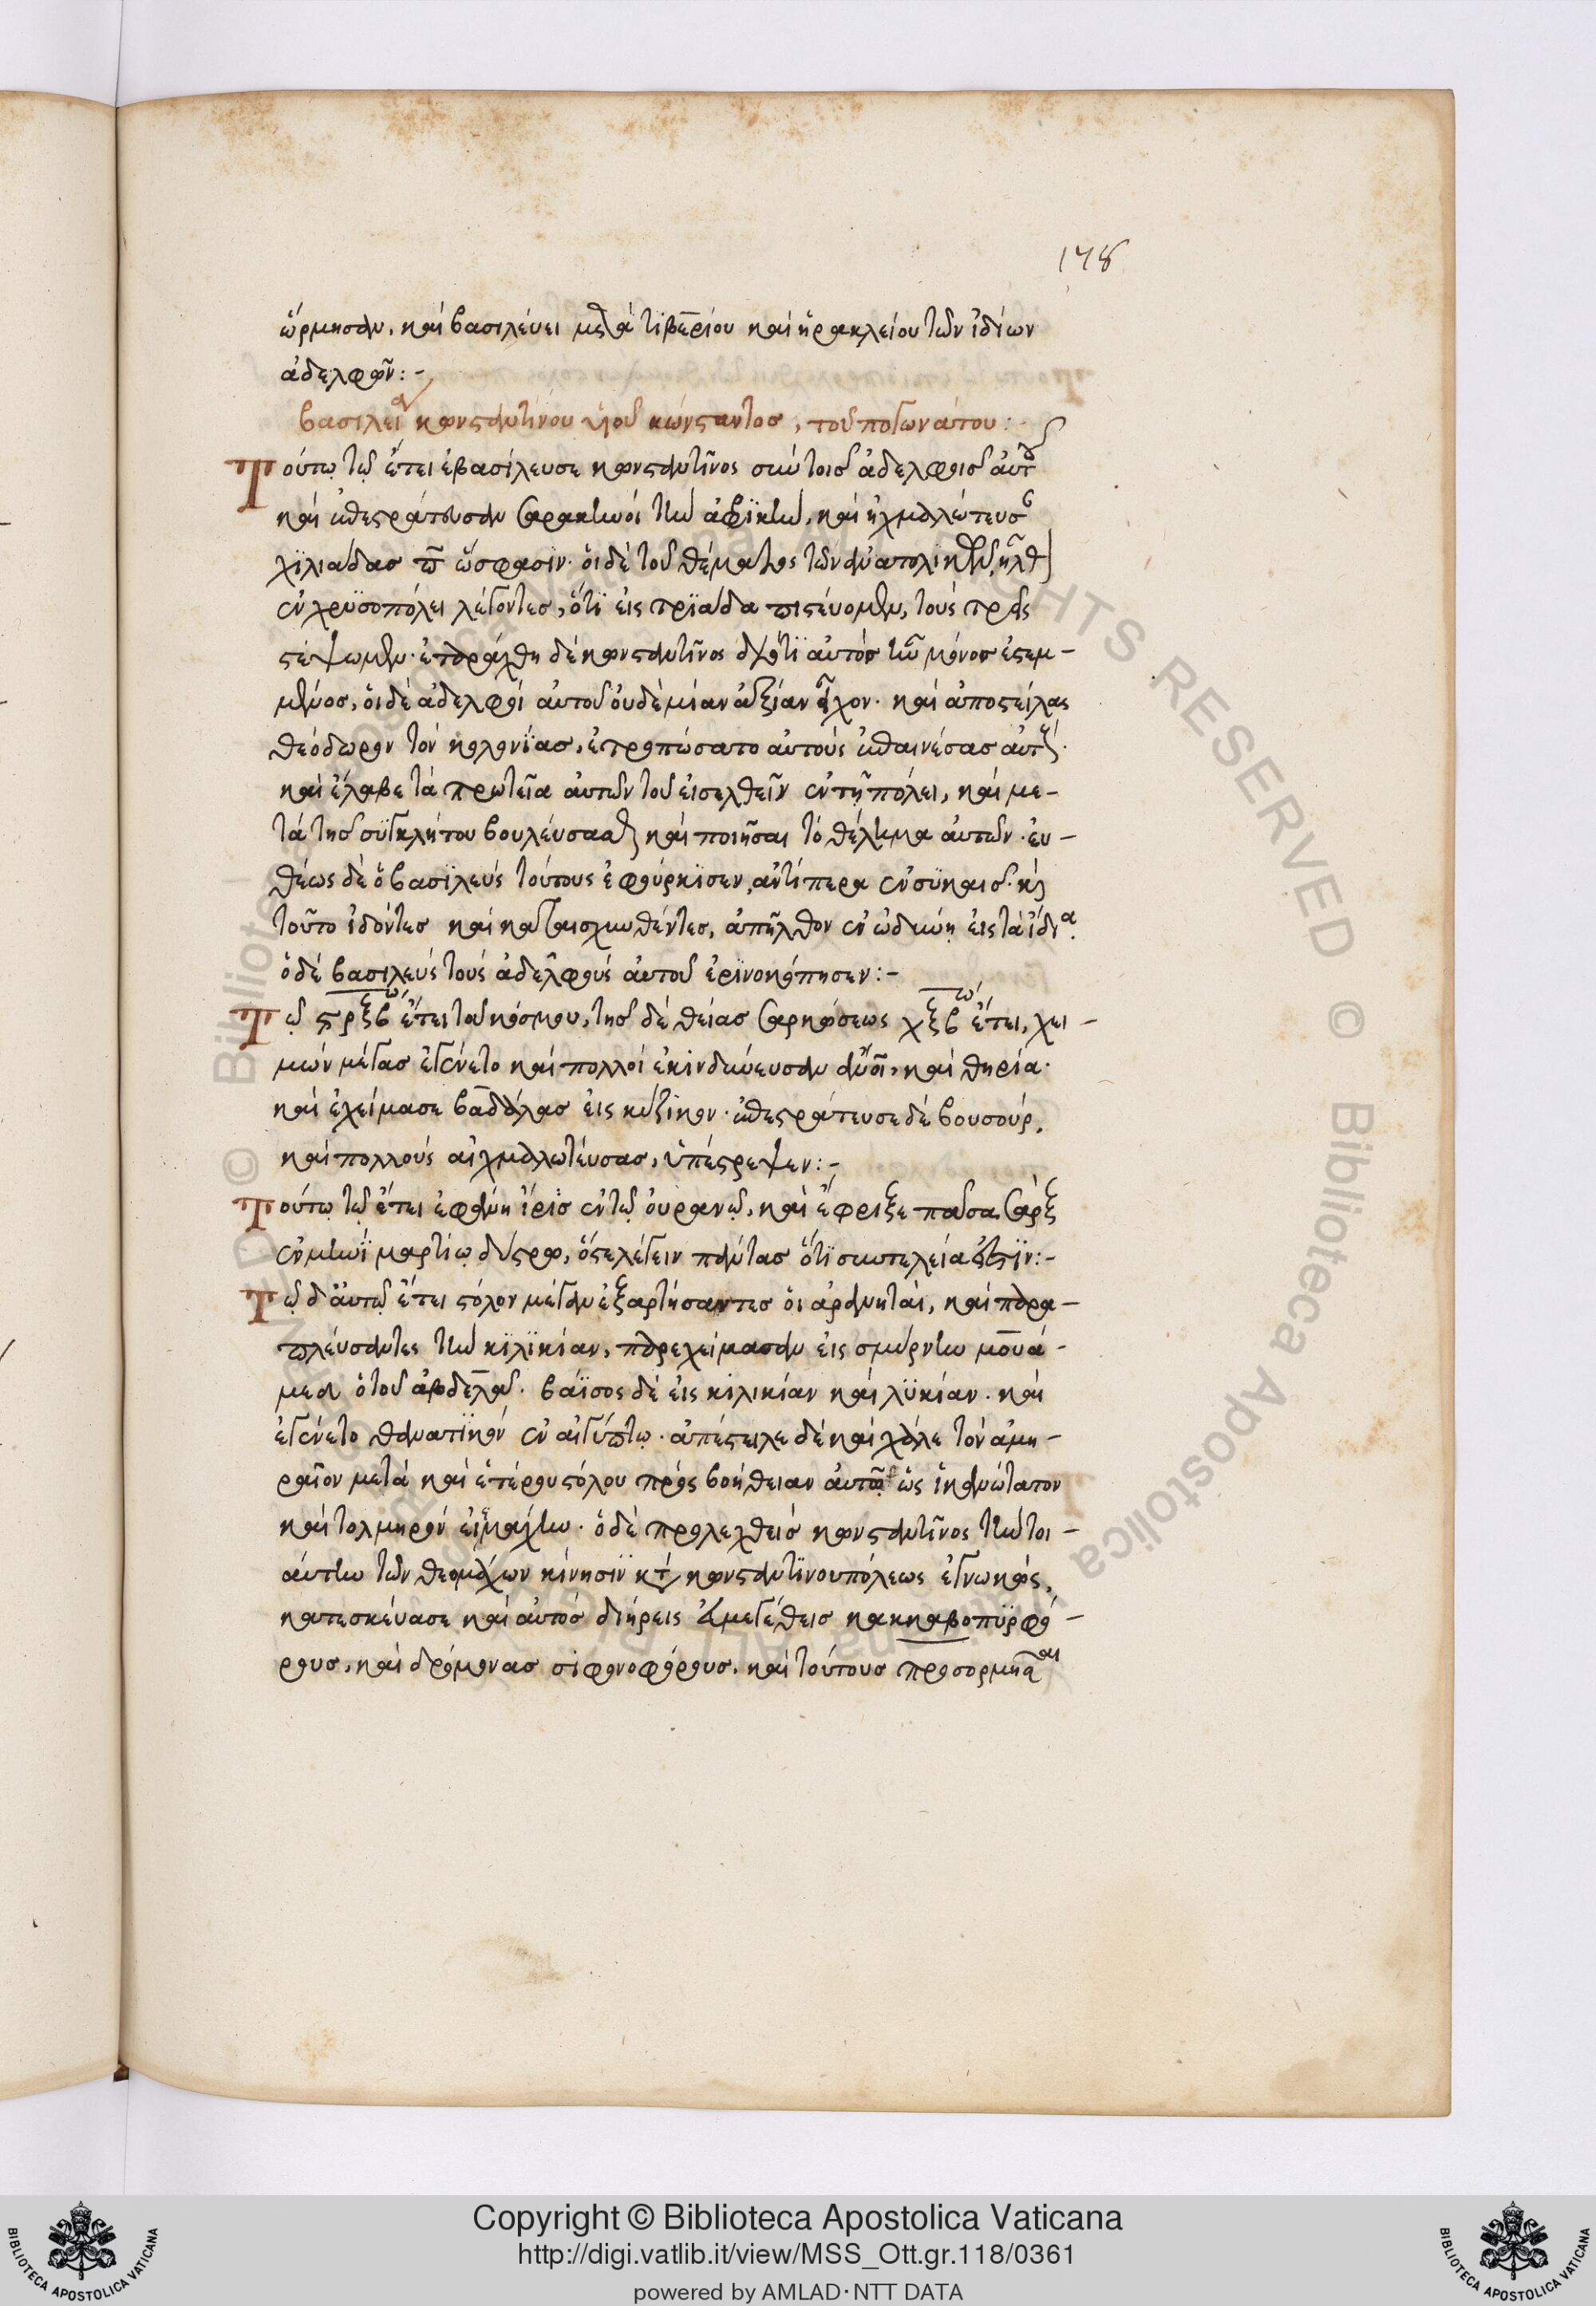 178
ὥρμησαν, καὶ βασιλεύει μετὰ τιβερίου καὶ ἡρακλείου τῶν ἰδίων
ἀδελφῶν:-
βασιλεία κωνσταντίνου υἱοῦ κώνσταντος, τοῦ πογωνάτου:
Τούτω τῶ ἔτει ἐβασίλευσε κωνσταντῖνος σὺν τοῖς ἀδελφοῖς αὐτοῦ
καὶ ἐπεστράτευσαν σαρακηνοὶ τὴν ἀφρικὴν, καὶ ἠχμαλώτευσ
χιλιάδας π ὥς φασιν· οἱ δὲ τοῦ θέματος τῶν ἀνατολικῶν ἦλθον
ἐν χρυσοπόλει λέγοντες, ὅτι εἰς τριάδα πιστεύομεν, τοὺς τρεῖς
στέψωμεν· ἐταράχθη δὲ κωνσταντῖνος διότι αὐτὸς ἦν μόνος ἐστεμ-
μένος, οἱ δὲ ἀδελφοὶ αὐτοῦ οὐδὲ μίαν ἀξίαν εἶχον· καὶ ἀποστείλας
θεόδωρον τὸν κολονίας, ἐτροπώσατο αὐτοὺς ἐπαινέσας αὐτούς·
καὶ ἔλαβε τὰ πρωτεῖα αὐτῶν τοῦ εἰσελθεῖν ἐν τῇ πόλει, καὶ με-
τὰ τῆς συγκλήτου βουλεύσασθαι καὶ ποιῆσαι τὸ θέλημα αὐτῶν· εὐ-
θέως δὲ ὁ βασιλεὺς τούτους ἐφούρκισεν, ἀντίπερα ἐν συκαῖς· καὶ
τοῦτο ἰδόντες καὶ καταισχυνθέντες, ἀπῆλθον ἐν ὠδύνη εἰς τὰ ἴδια
ὁ δὲ βασιλεὺς τοὺς ἀδελφοὺς αὐτοῦ ἐρινοκόπησεν:-
Τῶ ϛρξβ ἔτει τοῦ κόσμου, τῆς δὲ θείας σαρκώσεως χξβ ἔτει, χει-
μὼν μέγας ἐγένετο καὶ πολλοὶ ἐκινδύνευσαν ἄνοι, καὶ θηρία·
καὶ ἐχείμασε βαδδάλας εἰς κύζικον· ἐπεστράτευσε δὲ βουσούρ,
καὶ πολλοὺς αἰχμαλωτεύσας, ὑπέστρεψεν:-
Τούτω τῶ ἔτει ἐφάνη ἶρις ἐν τῶ οὐρανῶ, καὶ ἔφριξε πᾶσα σὰρξ
ἐν μηνὶ μαρτίω δύστρω, ὥστε λέγειν πάντας ὅτι συντέλεια ἐστίν:-
Τῶ δ αὐτῶ ἔτει στόλον μέγαν ἐξαρτήσαντες οἱ ἀρνηταὶ, καὶ παρα-
πλεύσαντες τὴν κιλικίαν, παρεχείμασαν εἰς σμύρνην μουά-
μεδ ὁ τοῦ ἀβδελᾶ. βάϊσος δὲ εἰς κιλικίαν καὶ λυκίαν. καὶ
ἐγένετο θανατικὸν ἐν αἰγύπτω· ἀπέστειλε δὲ καὶ χάλε τὸν ἀμη-
ραῖον μετὰ καὶ ἑτέρου στόλου πρὸς βοήθειαν αὐτῶν ὡς ἱκανώτατον
καὶ τολμηρὸν εἰς μάχην· ὁ δὲ προλεχθεὶς κωνσταντῖνος τὴν τοι-
αύτην τῶν θεομάχων κίνησιν κατὰ κωνσταντινουπόλεως ἐγνωκὼς,
κατεσκεύασε καὶ αὐτὸς διήρεις εὐμεγέθεις κακκαβοπυρφό-
ρους, καὶ δρόμωνας σιφωνοφόρους, καὶ τούτους προσορμῆσαι
Copyright © Biblioteca Apostolica Vaticana
http://digi.vatlib.it/view/MSS_Ott.gr.118/0361
powered by AMLAD·NTT DATA